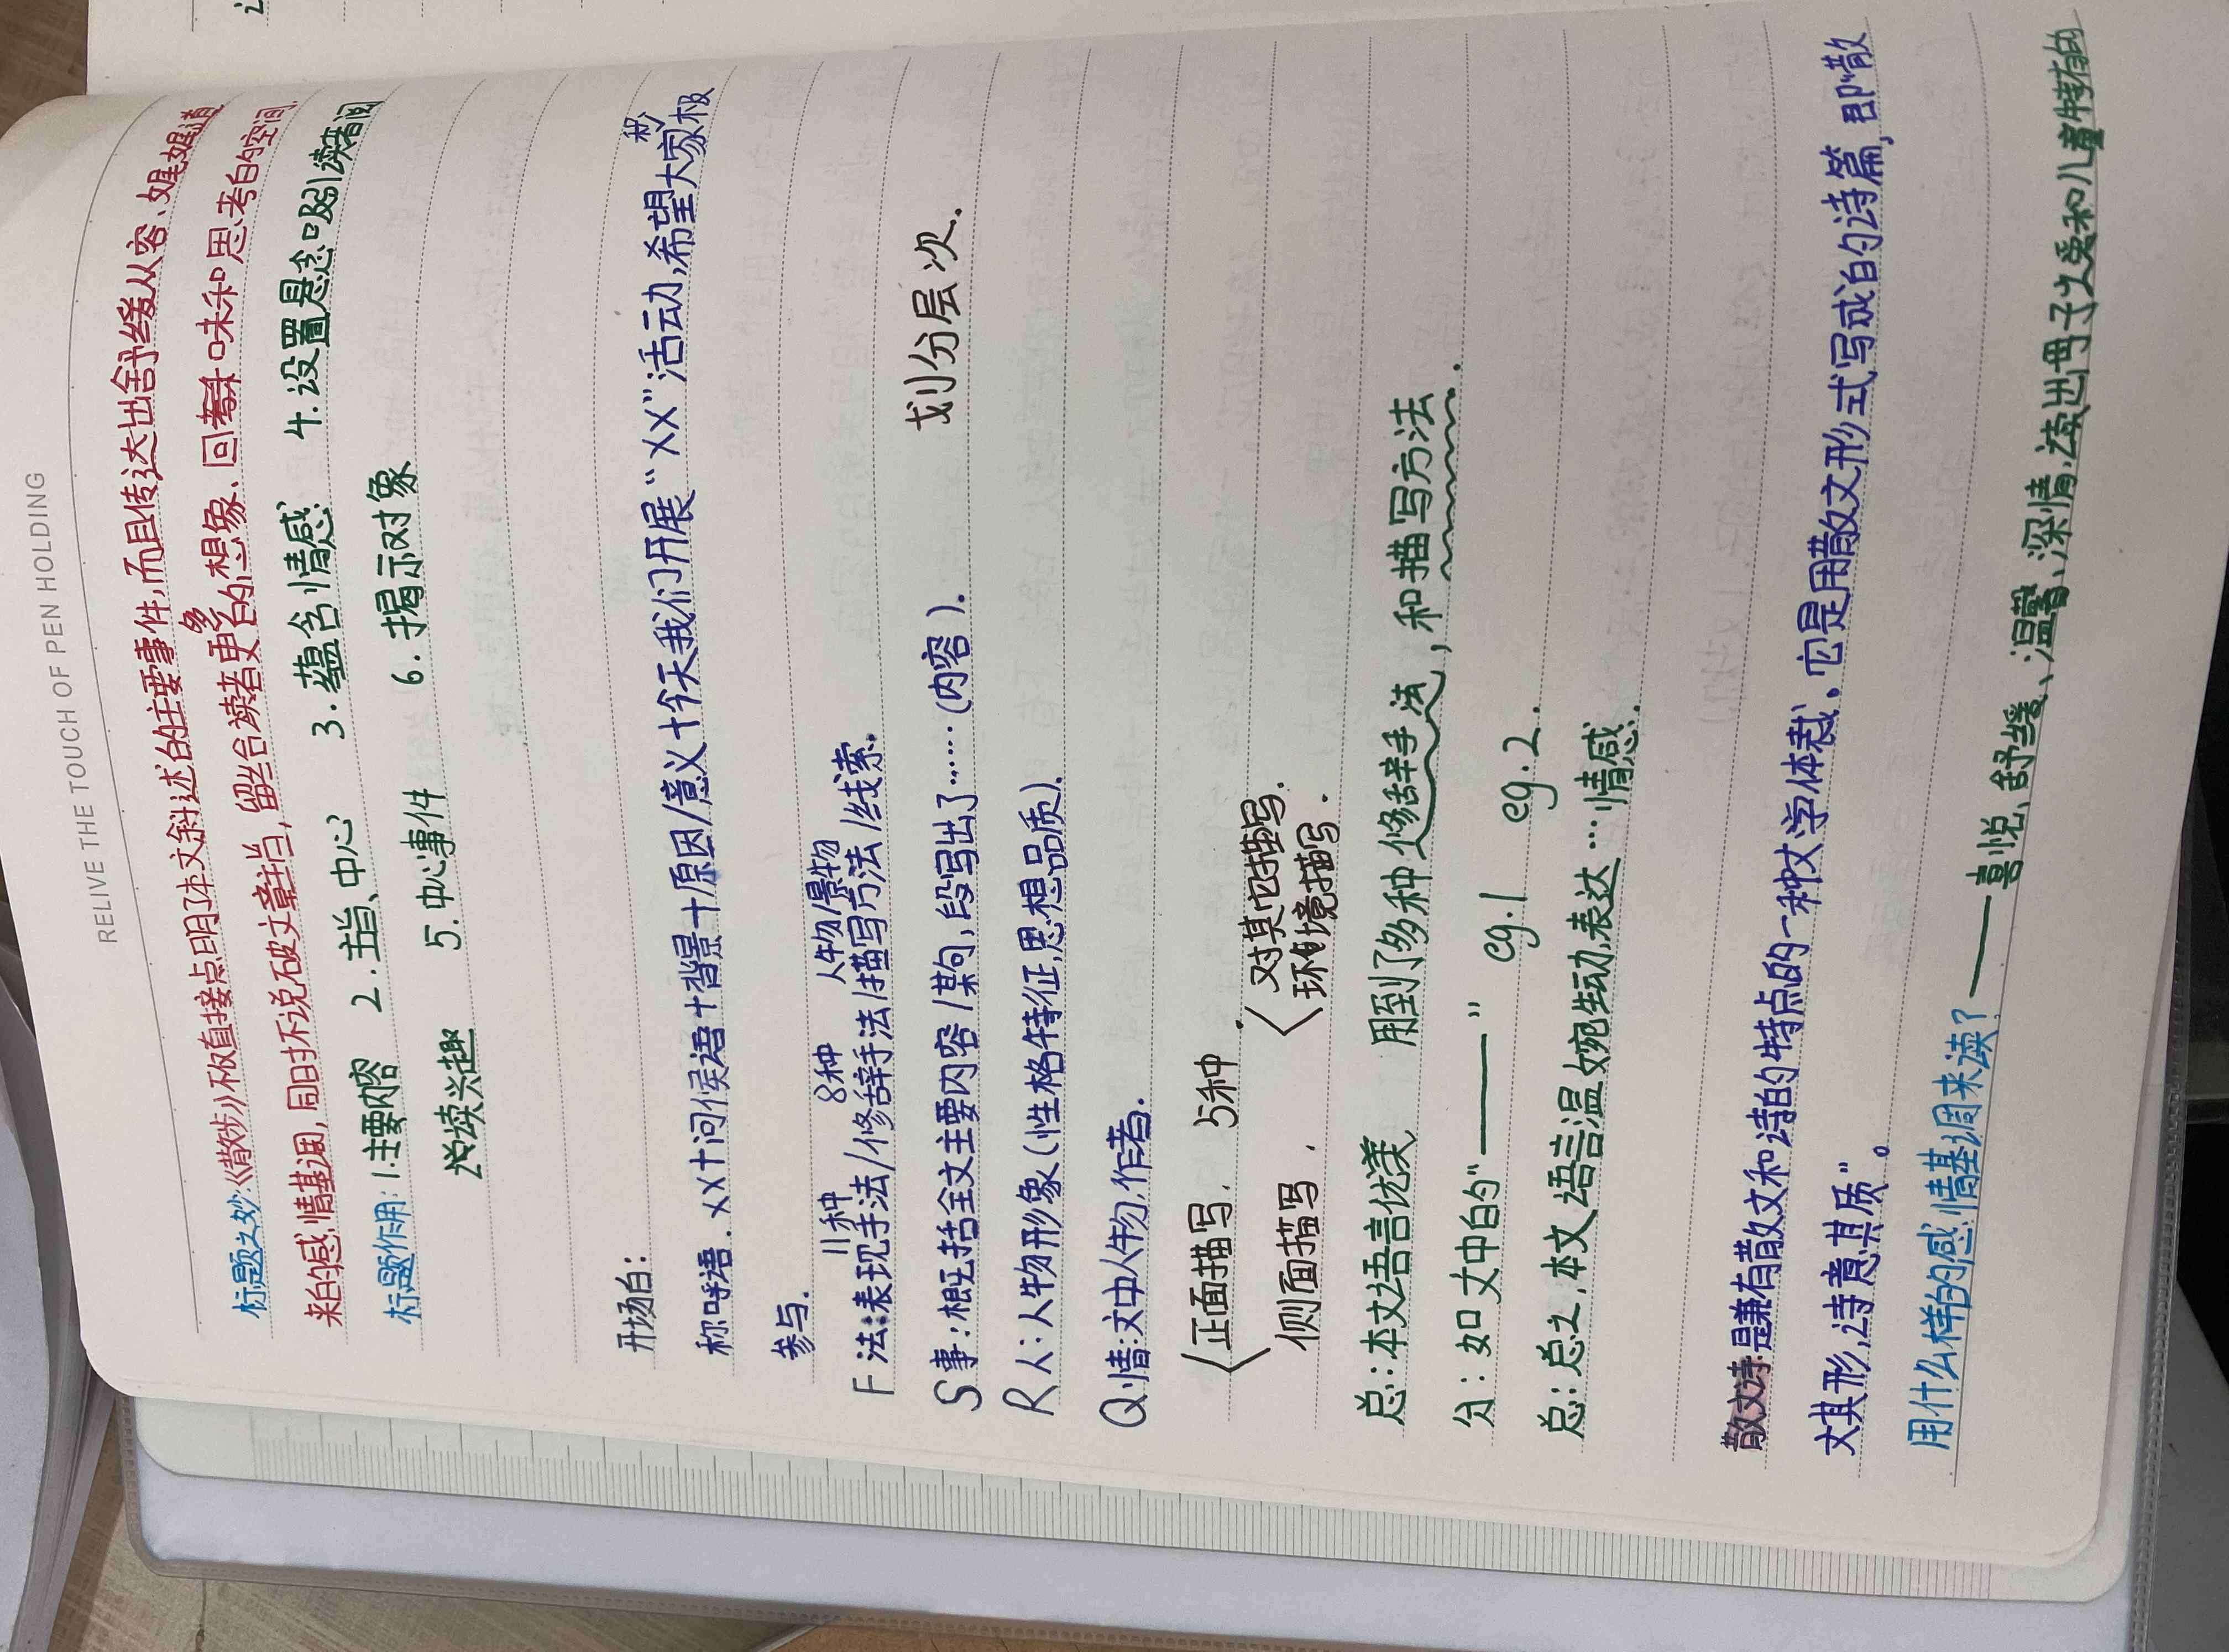 RELIVE THE TOUCH OF PEN HOLDING
标题之妙:《散步》不仅直接点明了本文叙述的主要事件,而且传达出舒缓从容、娓娓道
来的感情基调,同时不说破文章主旨,留给读者更多的想象、回味和思考的空间.
标题作用: 1.主要内容 2.主旨、中心 3.蕴含情感 4.设置悬念吸引读者阅
读兴趣 5.中心事件 6.揭示对象
开场白:
称呼语.××+问候语+背景+原因/意义+今天我们开展“××”活动,希望大家积极
参与.
11种 8种 人物/景物
F 法:表现手法/修辞手法/描写方法/线索.
S事:概括全文主要内容/某句,段写出了……(内容). 划分层次.
R人:人物形象(性格特征,思想品质).
Q情:文中人物,作者.
正面描写. 5种
侧面描写. 对其它描写.
环境描写.
总:本文语言优美. 用到了多种修辞手法,和描写方法.
分:如文中的“——” eg.1 eg.2.
总:总之,本文语言温婉生动,表达…情感.
散文诗:是兼有散文和诗的特点的一种文学体裁、它是用散文形式写成的诗篇,即“散
文其形,诗意其质”。
用什么样的感情基调来读?——喜悦,舒缓、温馨、深情,读出母子之爱和儿童特有的